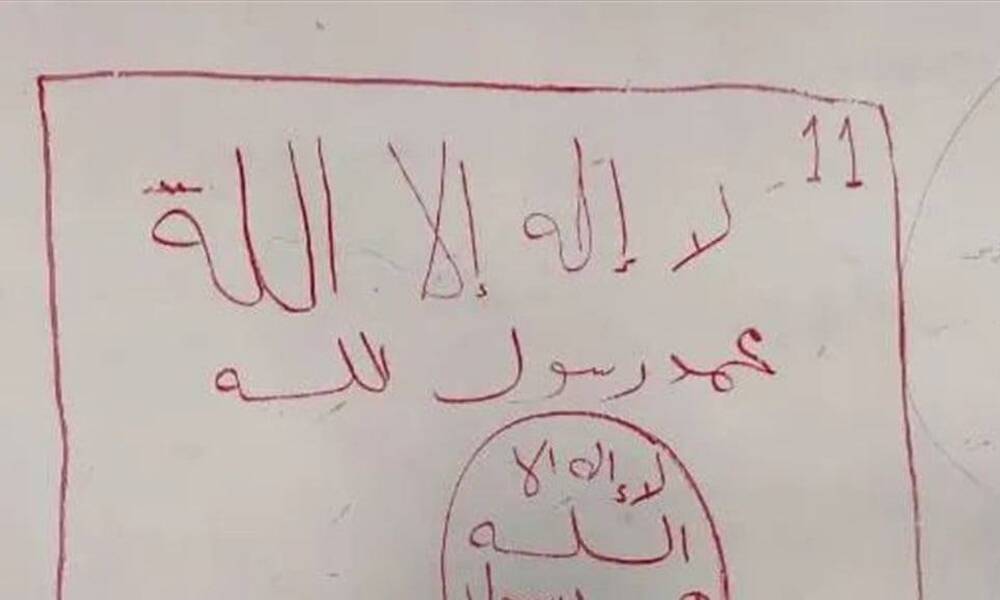 11
لا إله إلا اللة
محمد رسول الله
لا إله الا
الله